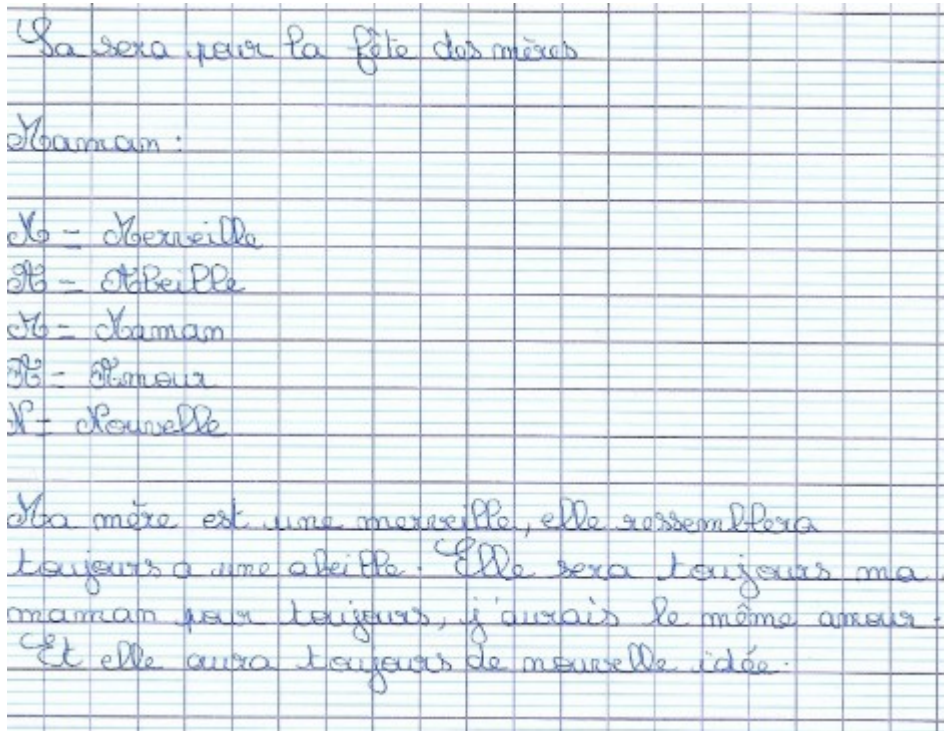 Sa sera pour la fête des mères
Maman :
M = Merveille
A = Abeille
M = Maman
A = Amour
N = Nouvelle
Ma mère est une merveille, elle ressemblera
toujours a une abeille. Elle sera toujours ma
maman pour toujours, j'aurais le même amour.
Et elle aura toujours de nouvelle idée.